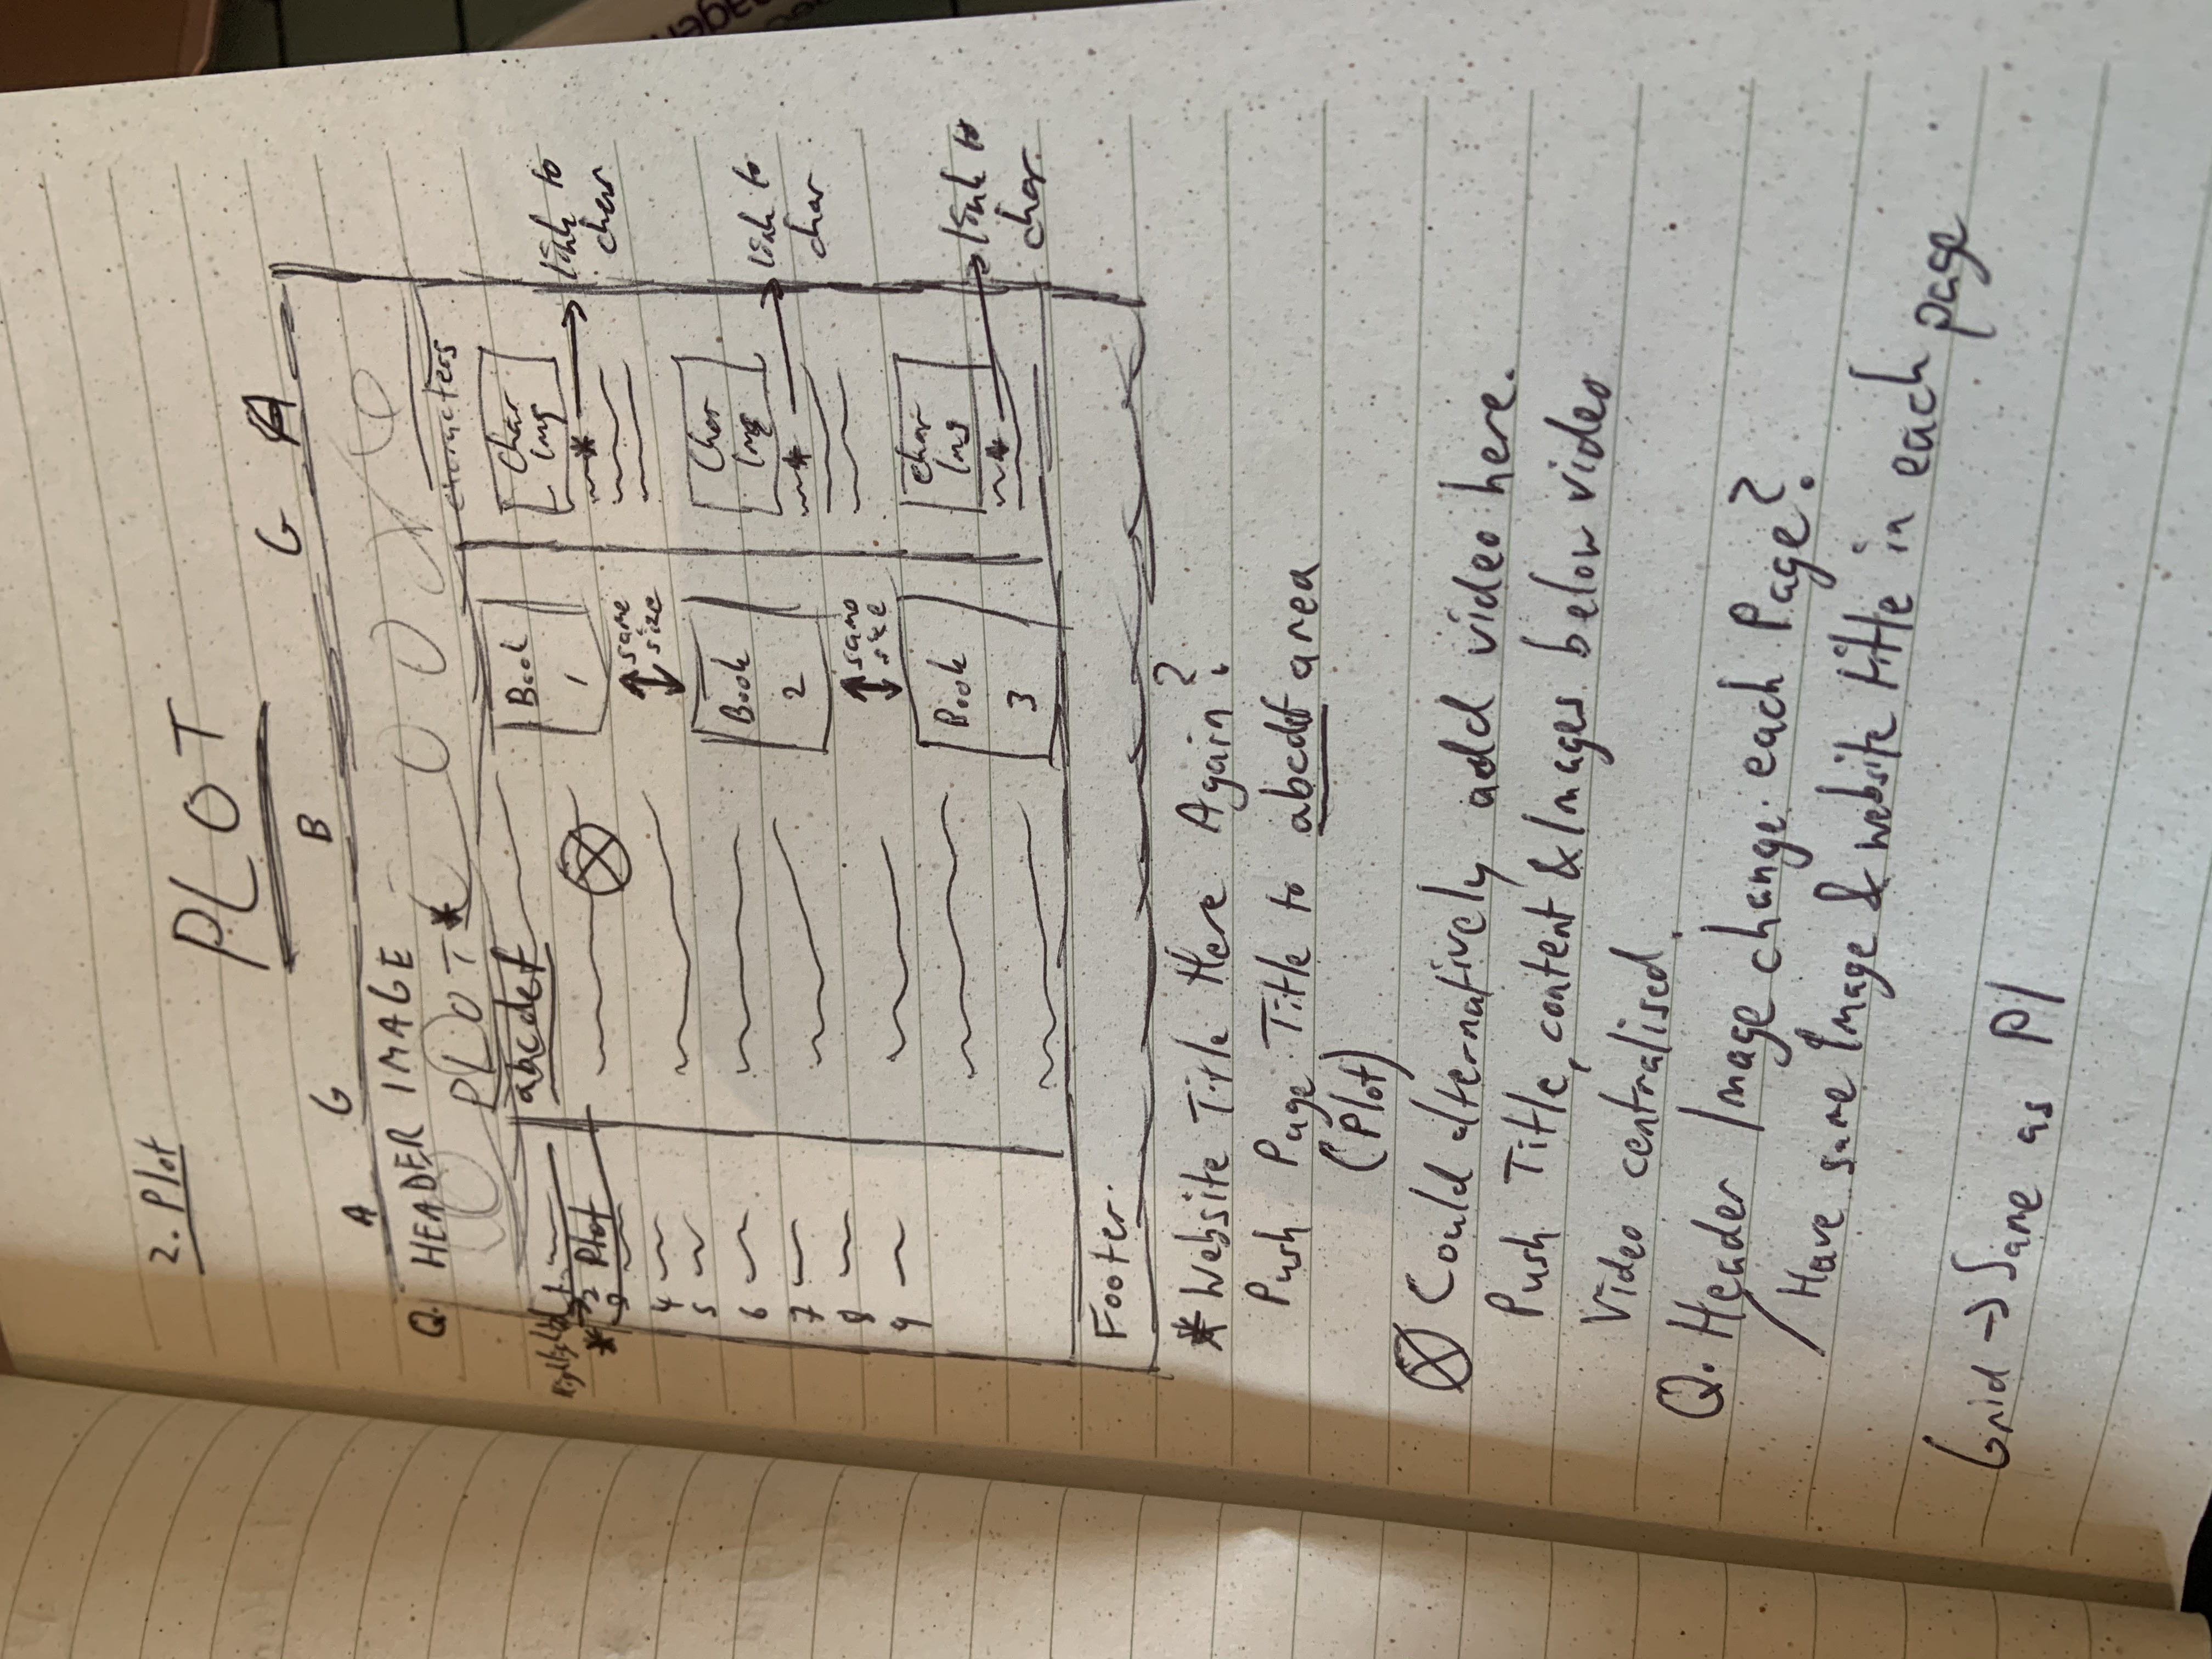 2. Plot
PLOT
A G B G A
Q. HEADER IMAGE
PLOT*
characters
abcdef
Highlighted
1.
* 2 Plot
3
4
5
6
7
8
9
Book
1
same
size
Book
2
same
size
Book
3
Char
Img
* link to
char
Char
Img
* link to
char
char
Img
* link to
char.
Footer.
* Website Title Here Again?
Push Page Title to abcdef area
(Plot)
Could alternatively add video here.
Push Title, content & Images below video
Video centralised.
Q. Header Image change each Page?
/ Have same Image & website title in each page
Grid → Same as P1